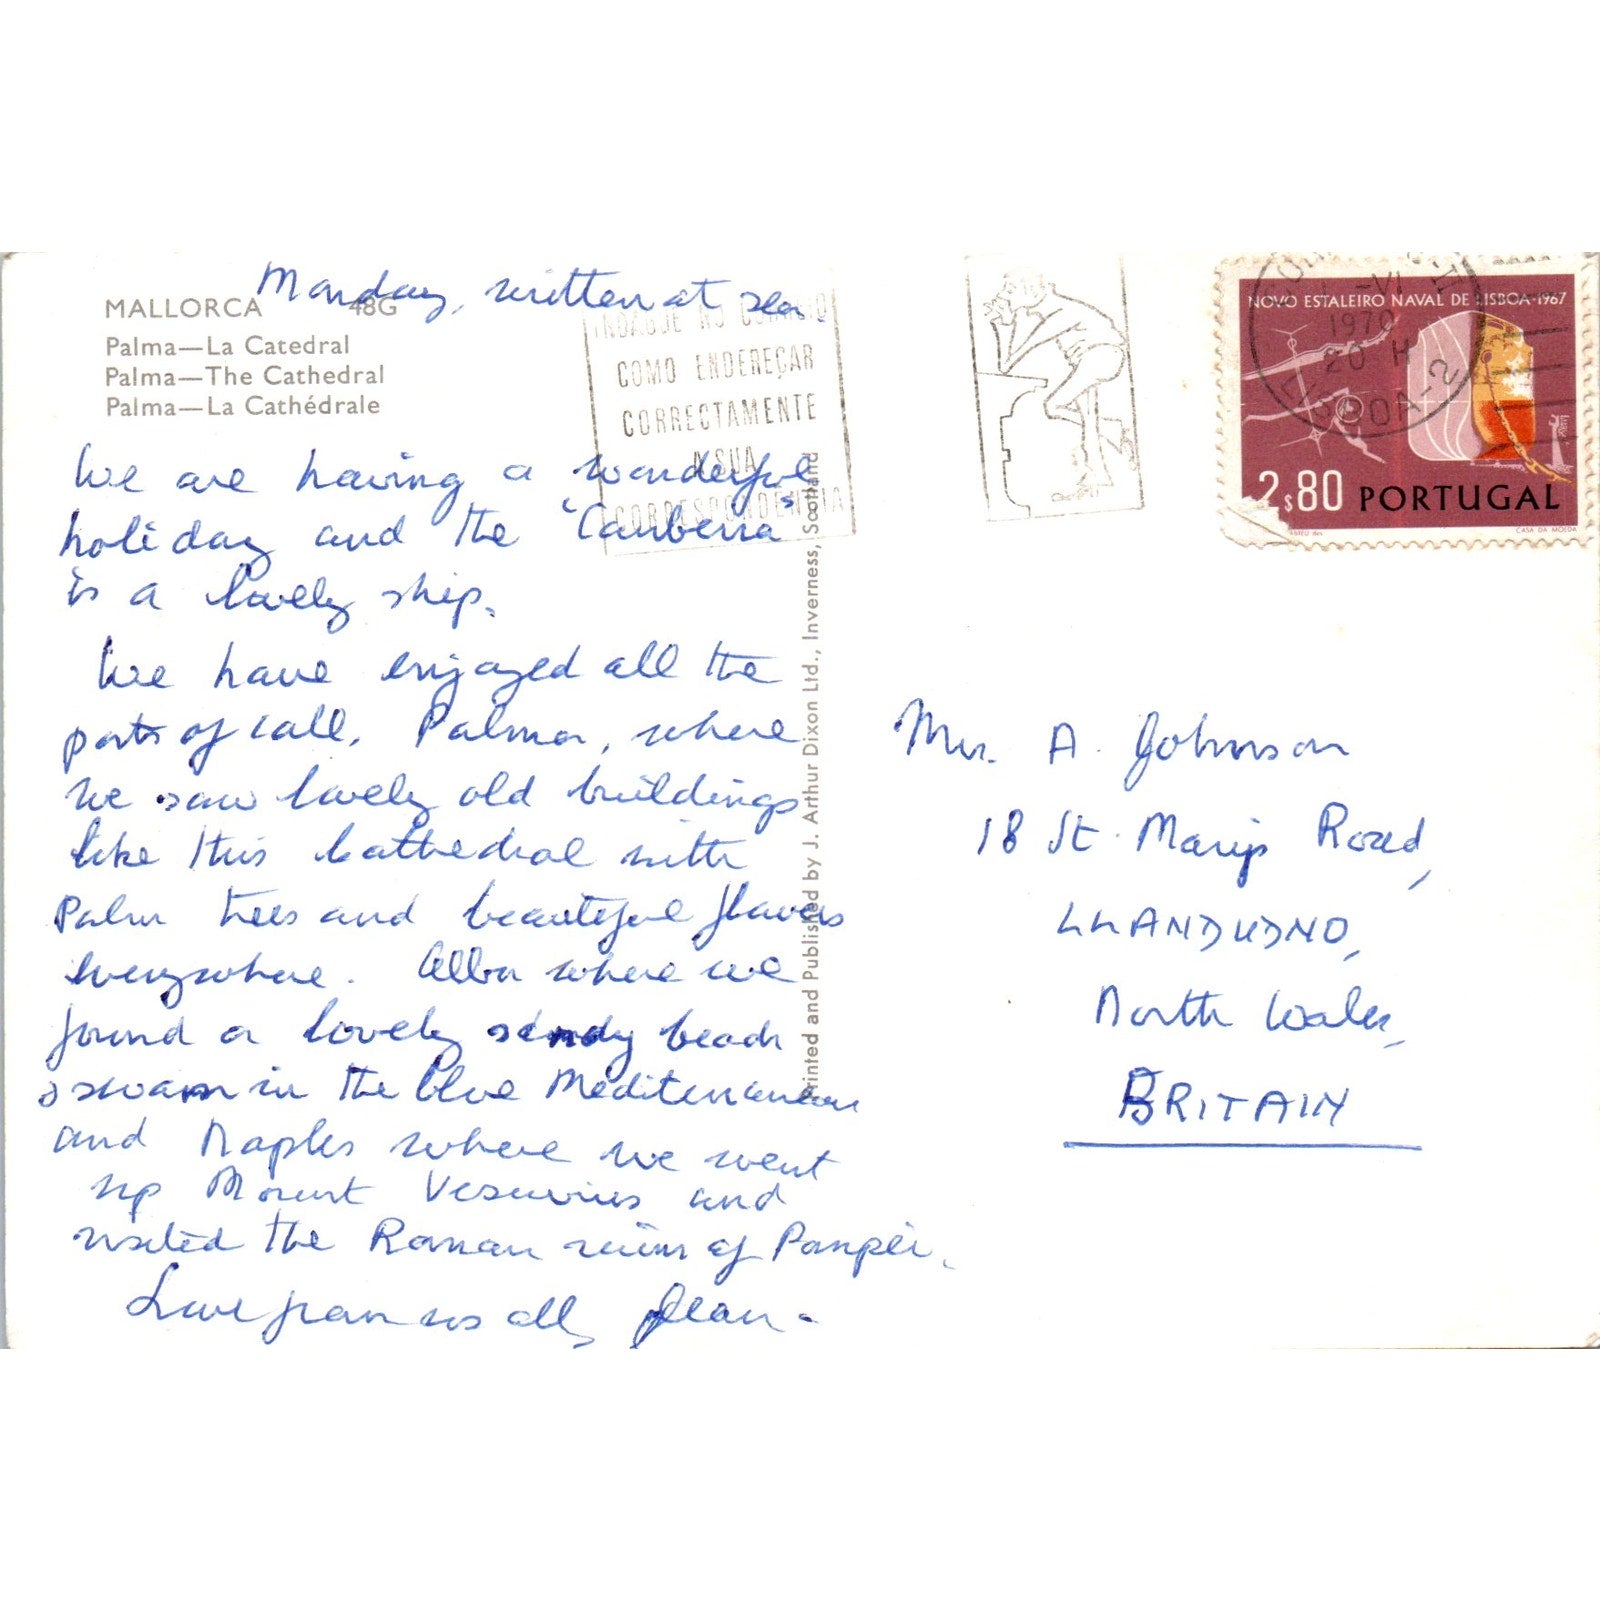 Monday, written at sea.
MALLORCA 48G
Palma—La Catedral
Palma—The Cathedral
Palma—La Cathédrale
We are having a wonderful
holiday and the "Canberra"
is a lovely ship.
We have enjoyed all the
ports of call. Palma, where
we saw lovely old buildings
like this Cathedral with
Palm trees and beautiful flowers
everywhere. Elba where we
found a lovely sandy beach
& swam in the blue Mediterranean
and Naples where we went
up Mount Vesuvius and
visited the Roman ruins of Pompei.
Love from us all, Jean.
INDAGUE NO CORREIO
COMO ENDEREÇAR
CORRECTAMENTE
A SUA
CORRESPONDENCIA
Printed and Published by J. Arthur Dixon Ltd., Inverness, Scotland
NOVO ESTALEIRO NAVAL DE LISBOA-1967
1970
20 H
LISBOA-2
2$80 PORTUGAL
CASA DA MOEDA
Mrs. A. Johnson
18 St. Mary's Road,
LLANDUDNO,
North Wales,
BRITAIN